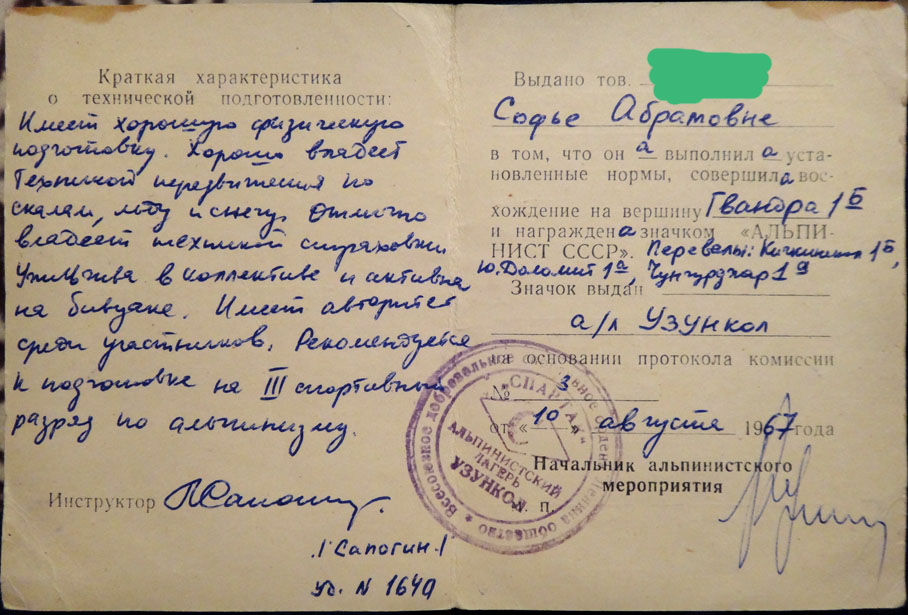 Краткая характеристика
о технической подготовленности:
Имеет хорошую физическую
подготовку. Хорошо владеет
техникой передвижения по
скалам, льду и снегу. Отлично
владеет техникой страховки
Уживчива в коллективе и активна
на бивуаке. Имеет авторитет
среди участников. Рекомендуется
к подготовке на III спортивный
разряд по альпинизму.
Инструктор
/Сапогин/
Уд. N 1640
Выдано тов.
Софье Абрамовне
в том, что он а выполнил а уста-
новленные нормы, совершил а вос-
хождение на вершину Гвандра 1Б
и награжден а значком «АЛЬПИ-
НИСТ СССР». Перевалы: 1Б,
Ю. Доломит 1а, Чунгурджар 1а
Значок выдан
а/л УЗУНКОЛ
на основании протокола комиссии
№ 3
от «10» августа 1967 года
Начальник альпинистского
мероприятия
М. П.
Всесоюзное добровольное общество
«СПАРТАК»
АЛЬПИНИСТСКИЙ
ЛАГЕРЬ
УЗУНКОЛ